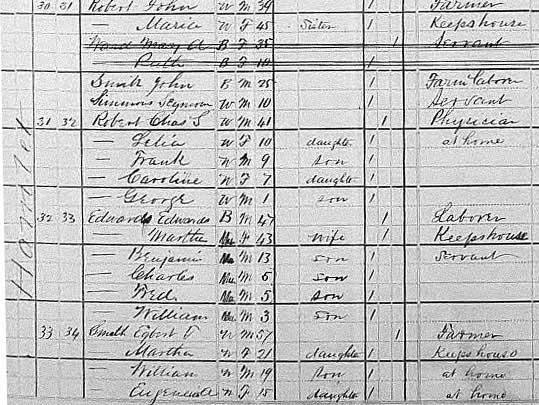 30 31 Robert John W M 39 / Farmer
— Maria W F 45 Sister / Keeps house
Ward Mary A B F 35 / Servant
— Ruth B F 10 /
Smith John B M 25 / Farm laborer
Simmons Seymour W M 10 / Servant
31 32 Robert Chas S W M 41 / Physician
— Lelia W F 10 daughter / at home
— Frank W M 9 son /
— Caroline W F 7 daughter /
— George W M 1 son /
32 33 Edwards Edwards B M 47 / Laborer
— Martha Mu F 43 wife / Keeps house
— Benjamin Mu M 13 son / Servant
— Charles Mu M 6 son /
— Fred Mu M 5 son /
— William Mu M 3 son /
33 34 Smith Egbert T W M 57 / Farmer
— Martha W F 21 daughter / Keeps house
— William W M 19 son / at home
— Eugenie A W F 15 daughter / at home